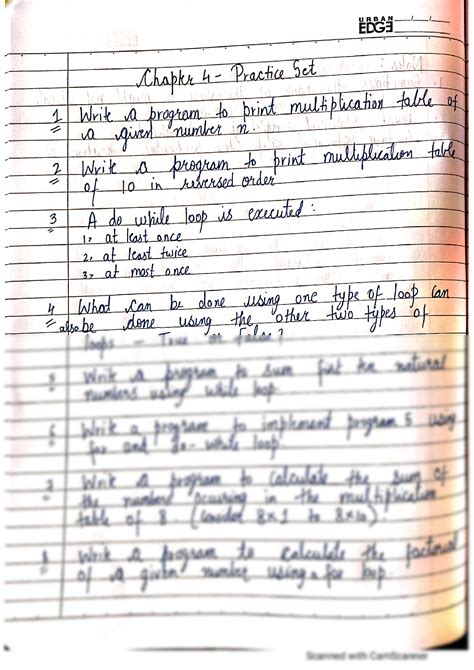 URBAN
EDGE
Chapter 4 - Practice Set
1 Write a program to print multiplication table of
a given number n.
2 Write a program to print multiplication table
of 10 in reversed order
3 A do while loop is executed :
1, at least once
2, at least twice
3, at most once
4 What can be done using one type of loop can
also be done using the other two types of
loops - True or False ?
5 Write a program to sum first ten natural
numbers using while loop.
6 Write a program to implement program 5 using
for and do-while loop
7 Write a program to calculate the sum of
the numbers occuring in the multiplication
table of 8. (Consider 8x1 to 8x10)
8 Write a program to calculate the factorial
of a given number using a for loop.
Scanned with CamScanner